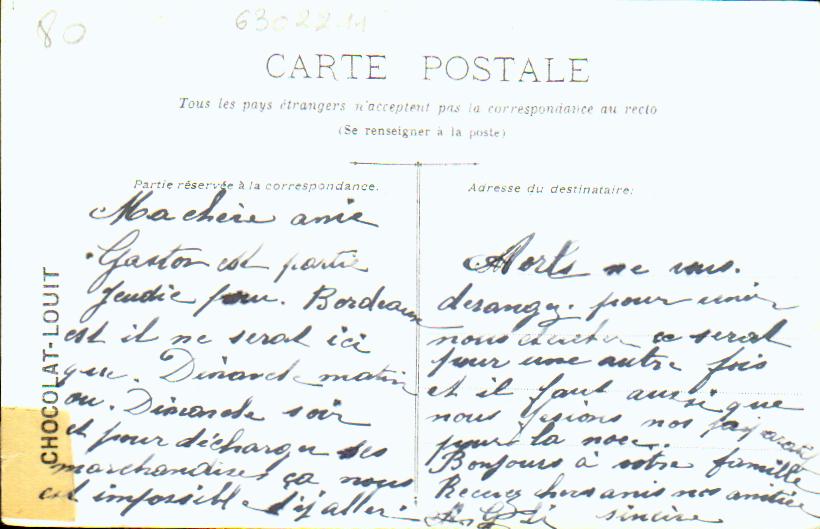 80
63022.11
CARTE POSTALE
Tous les pays étrangers n'acceptent pas la correspondance au recto
(Se renseigner à la poste)
Partie réservée à la correspondance.
Ma chère amie
Gaston est partie
Jeudie pour. Bordeaux
est il ne serat ici
que. Dimanche matin
ou. Dimanche soir
et pour décharger ses
marchandises ça nous
est impossible d'y aller.
Adresse du destinataire:
Alorts ne vous.
deranger. pour venir
nous chercher ce serat
pour une autre fois
et il faut aussi que
nous fesions nos
pour la noce.
Bonjours à votre famille
Recevez chers amis nos amitier
sincère
CHOCOLAT-LOUIT